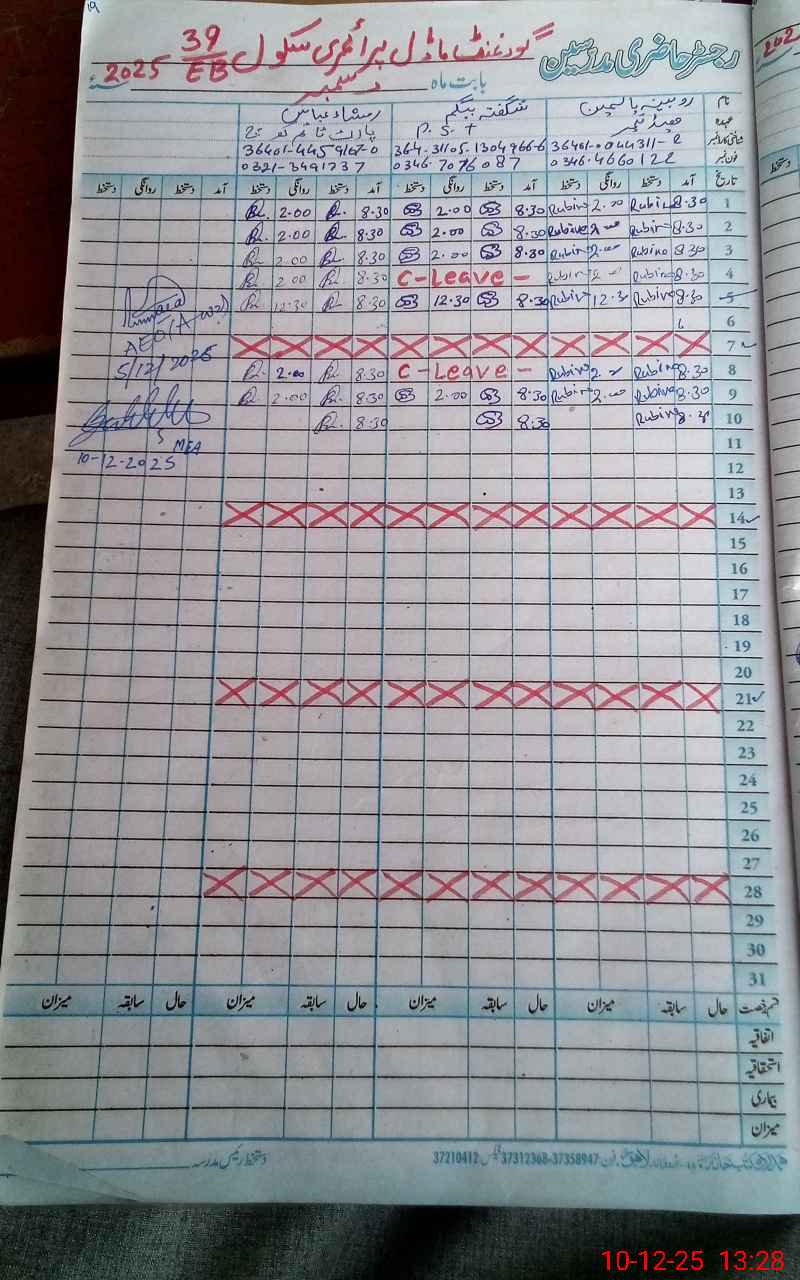 19
رجسٹر حاضری مدرسین گورنمنٹ ماڈل پرائمری سکول 39/EB 2025
بابت ماہ دسمبر
نام روبینہ یاسمین شگفتہ بیگم رمشاء عباس
عہدہ ہیڈ ٹیچر P.S.T
شناختی کارڈ نمبر
فون نمبر 0346.4660122 0346.7076087 0321-3491737
تاریخ آمد دستخط روانگی دستخط آمد دستخط روانگی دستخط آمد دستخط روانگی دستخط آمد دستخط روانگی دستخط
1 8.30 Rubina 2.00 Rubina 8.30 2.00 8.30 2.00
2 8.30 Rubina 2.00 Rubina 8.30 2.00 8.30 2.00
3 8.30 Rubina 2.00 Rubina 8.30 2.00 8.30 2.00
4 8.30 Rubina 2.00 Rubina C-Leave - 8.30 2.00
5 8.30 Rubina 12.30 Rubina 8.30 12.30 8.30 12.30
6
7
8 8.30 Rubina 2.00 Rubina C-Leave - 8.30 2.00
9 8.30 Rubina 2.00 Rubina 8.30 2.00 8.30 2.00
10 8.30 Rubina 8.30 8.30
11
12
13
14
15
16
17
18
19
20
21
22
23
24
25
26
27
28
29
30
31
AEO
5/12/2025
MEA
10-12-2025
قسم رخصت حال سابقہ میزان حال سابقہ میزان حال سابقہ میزان حال سابقہ میزان
اتفاقیہ
استحقاقیہ
بیماری
میزان
دستخط رئیس مدرسہ
37210412 37312368-37358947
10-12-25 13:28